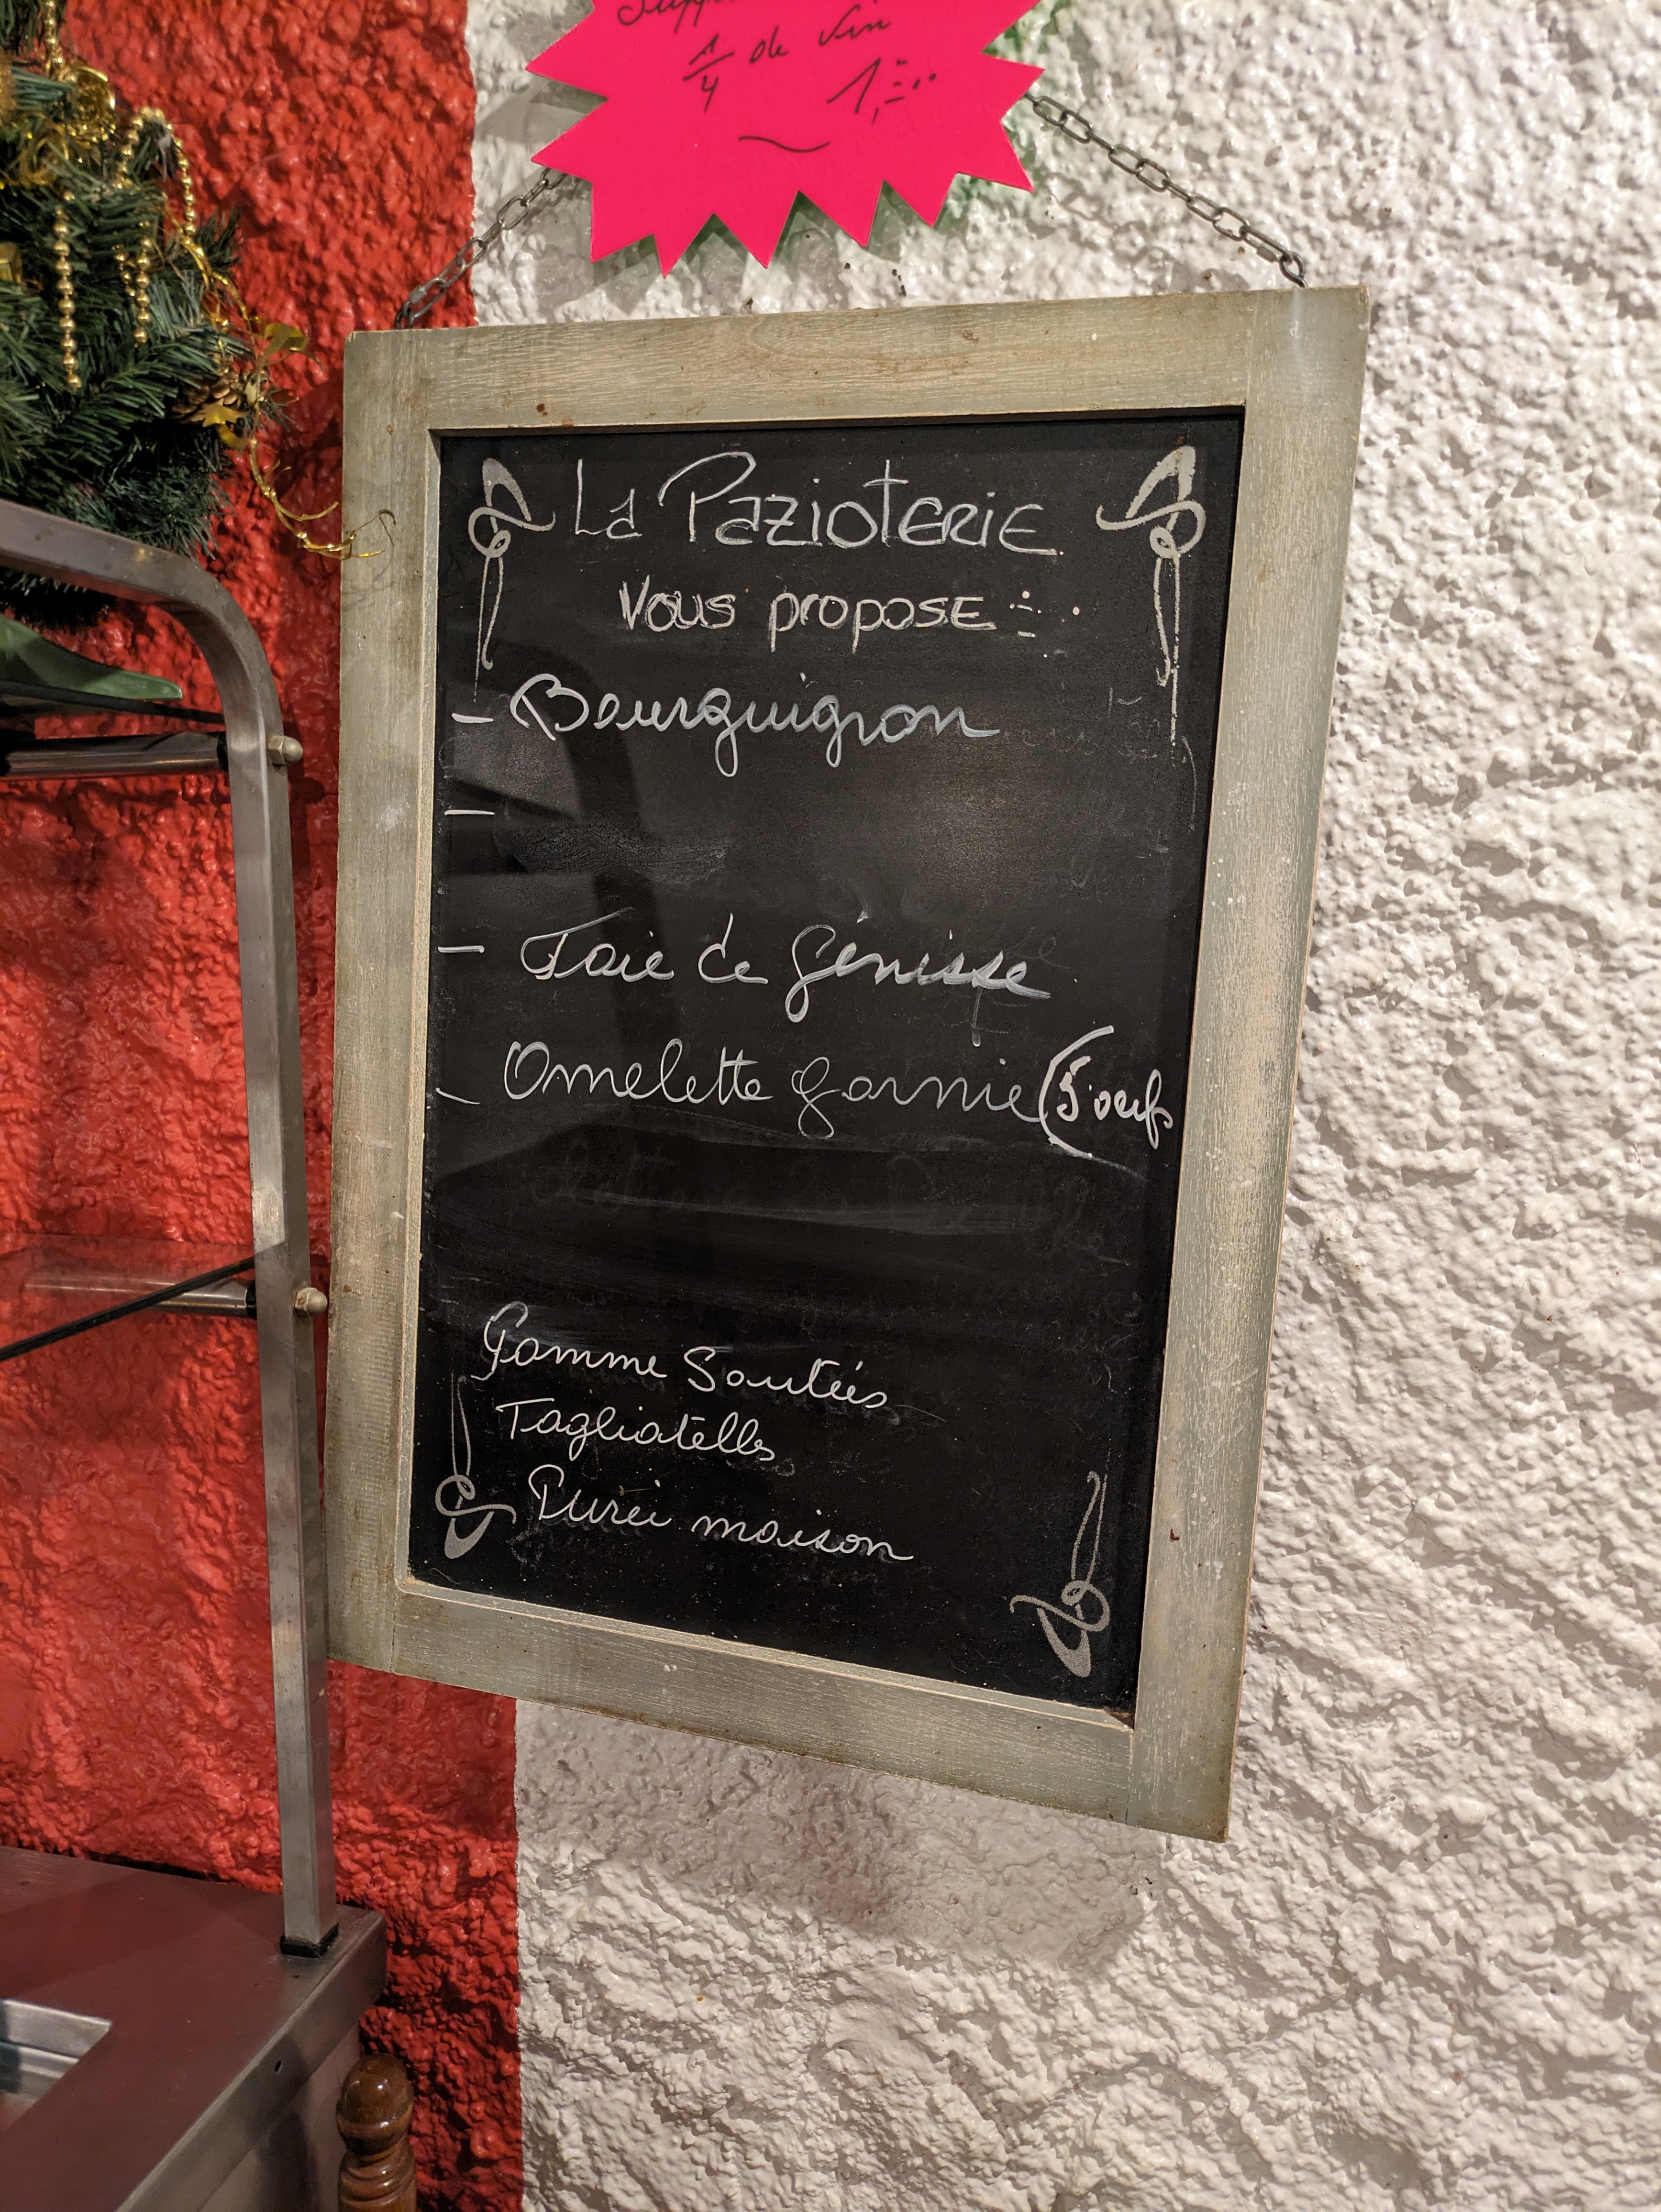 1/4 de vin 1,=..
La PazioTERIE
Vous proposE :
- Bourguignon
-
- Foie de génisse
- Omelette garnie (5 oeufs
Pomme Sautées
Tagliatelles
Purée maison